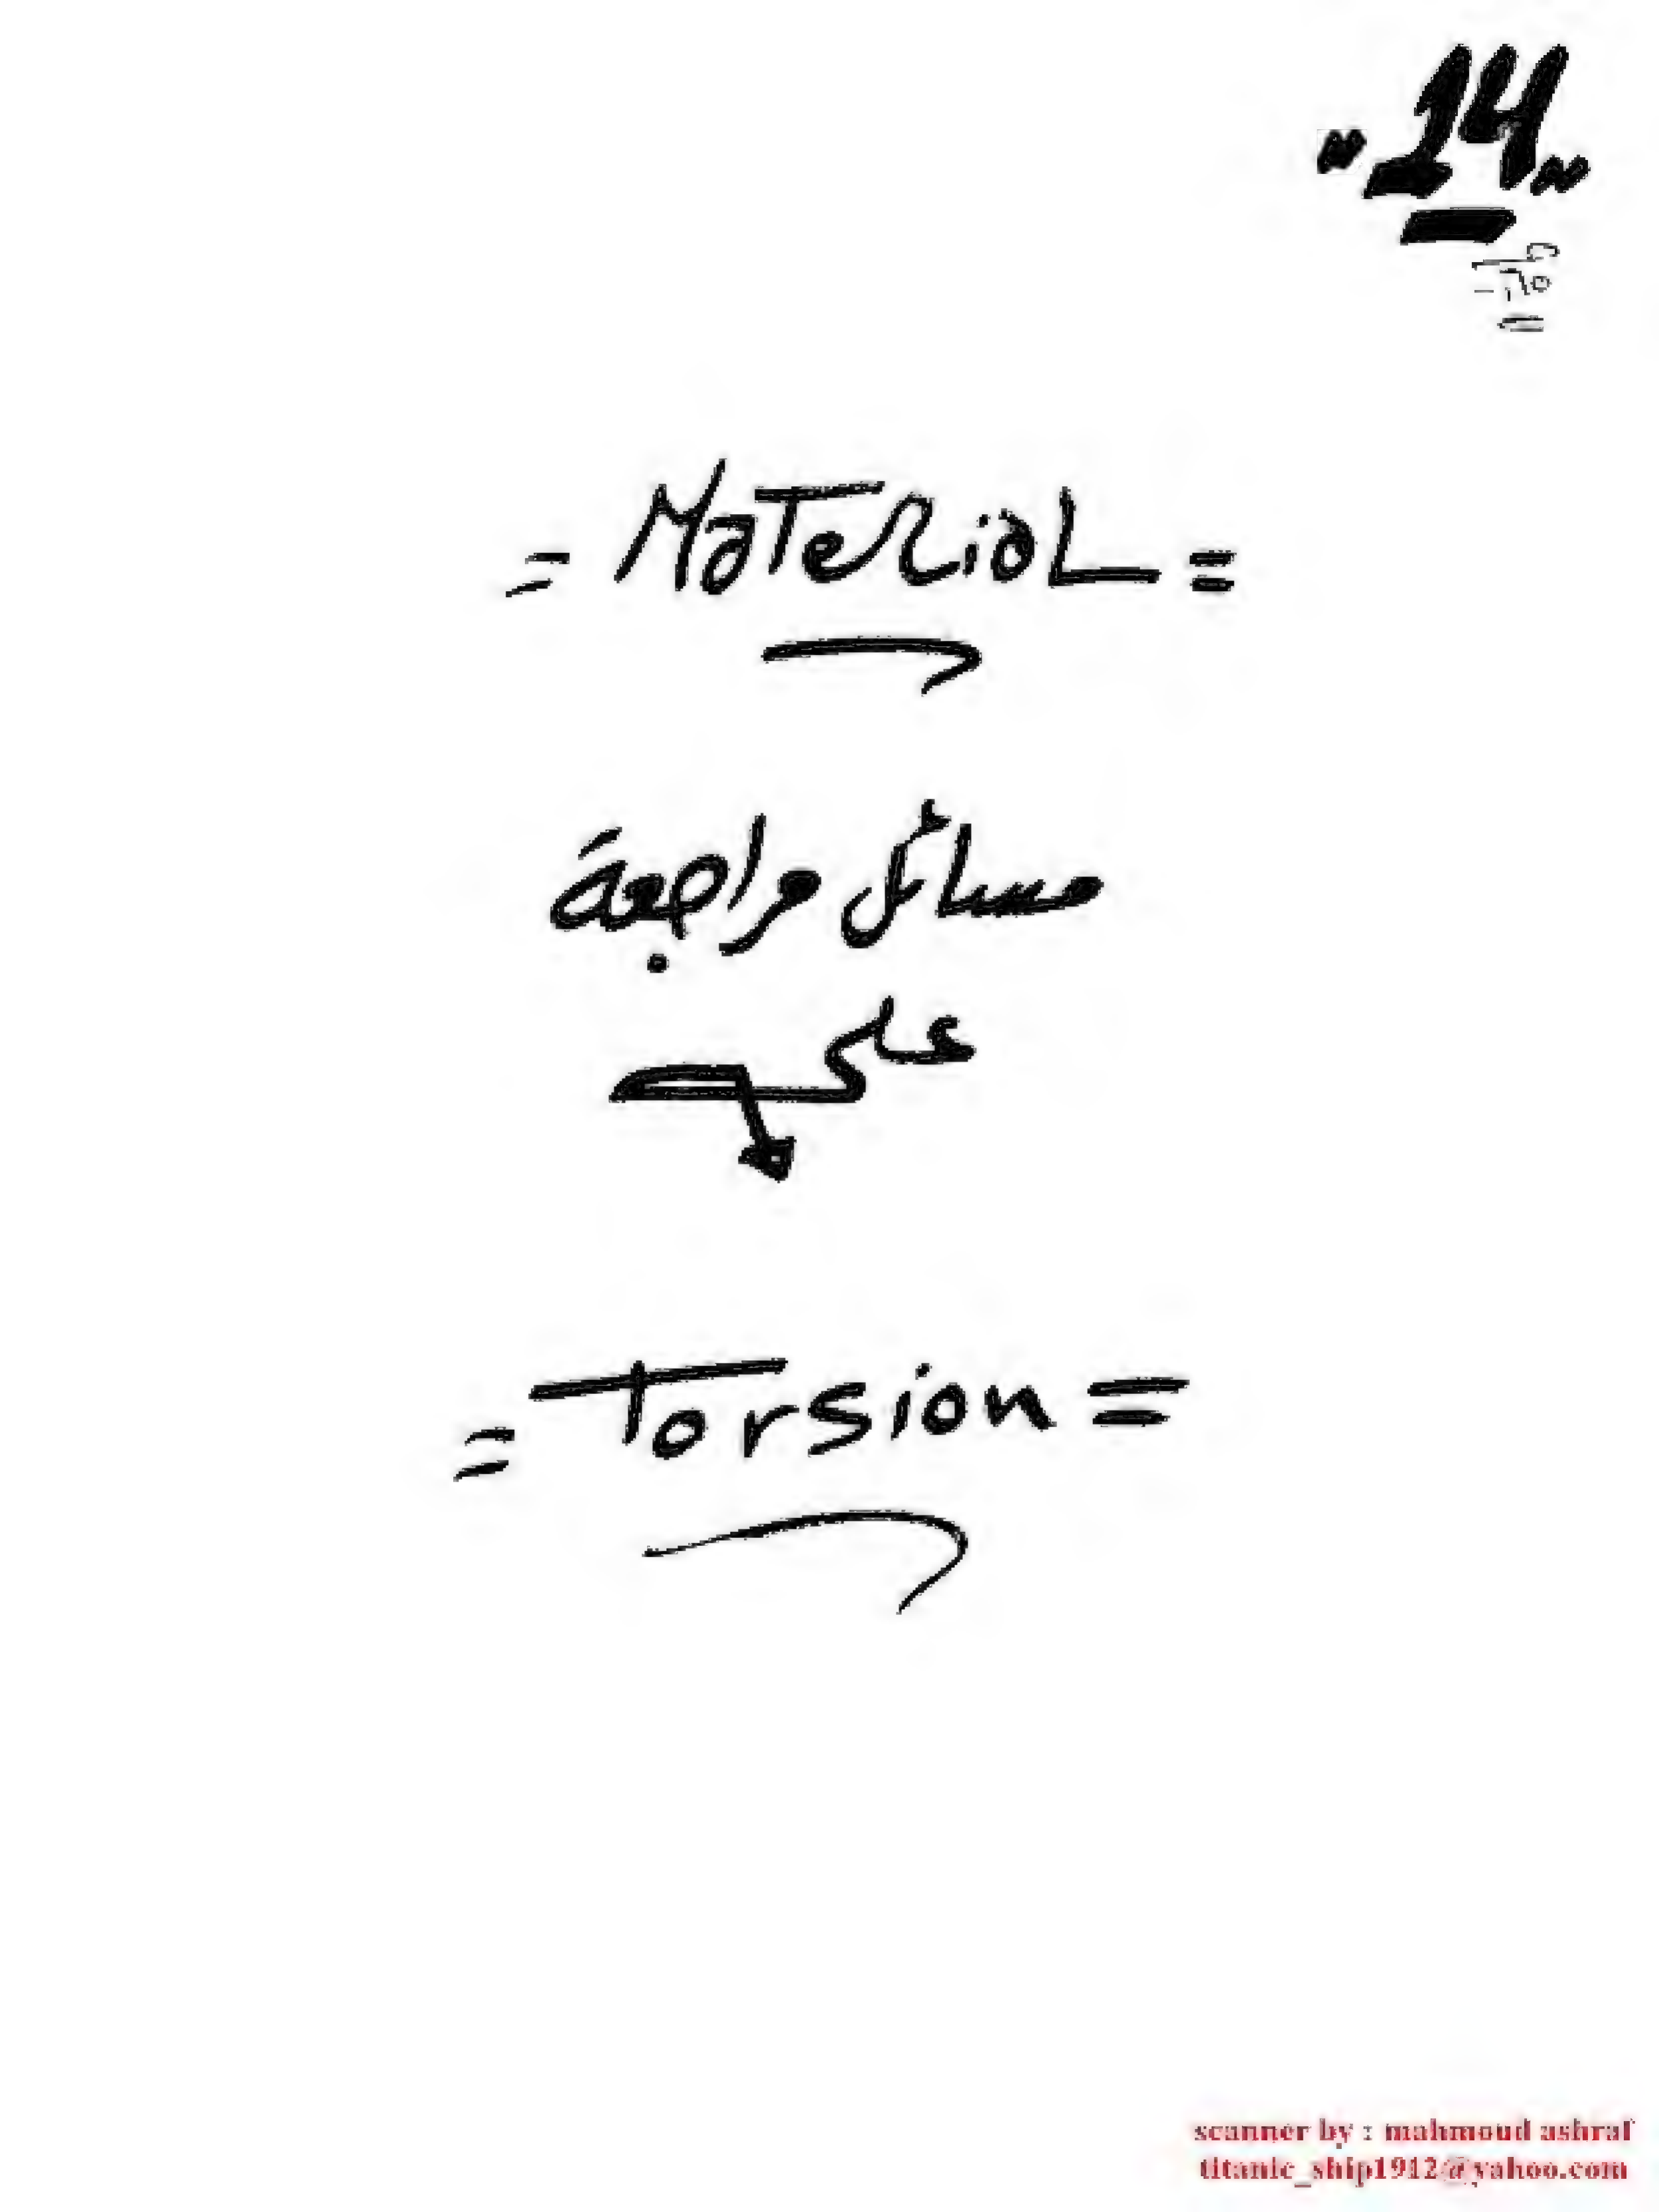 "14"
= Material =
مسائل مراجعة
على
= Torsion =
scanner by : mahmoud ashraf
titanic_ship1912@yahoo.com